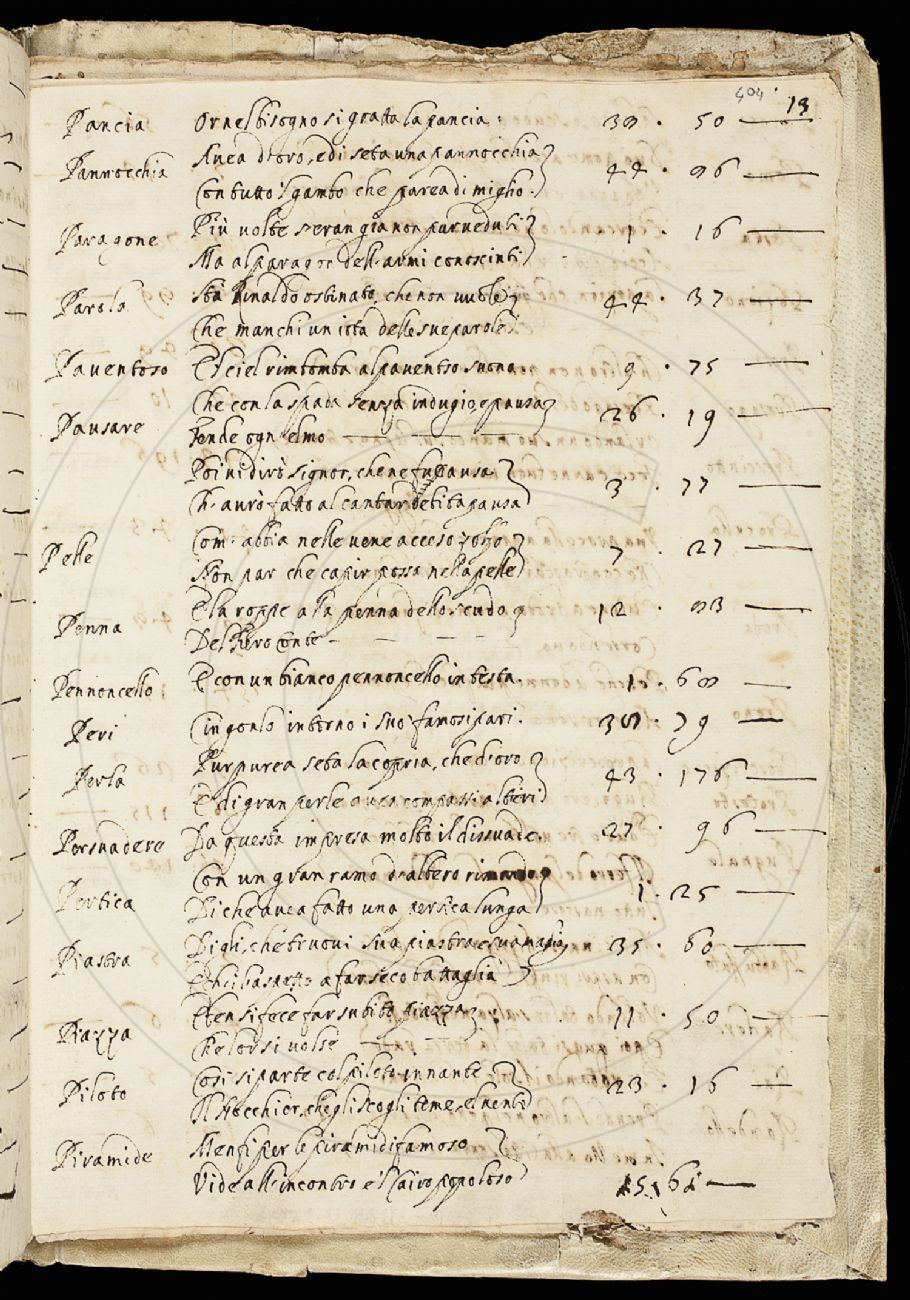 404
13
Pancia Or nel bisogno si gratta la pancia. 38 · 50
Pannocchia Avea d'oro, e di seta una pannocchia 44 · 96
Con tutto 'l gambo che parea di miglio.
Paragone Più volte s'eran gia non pur veduti 1 · 16
Ma al paragon dell'armi conosciuti
Parola Stà Rinaldo ostinato, che non vuole 44 · 37
Che manchi un iota delle sue parole.
Paventoso E'l ciel rimbomba al paventoso suono. 9 · 75
Pausare Che con la spada senza indugio, e pausa 26 · 19
Fende ogn'elmo
Poi vi dirò signor, che ne fu causa 3 · 77
Ch'avrò fatto al cantar debita pausa
Pelle Com'abbia nelle vene acceso zolfo 7 · 27
Non par che capir possa nella pelle
Penna E la roppe a la penna dello scudo 12 · 83
Del fiero Conte
Pennoncello E con un bianco pennoncello in testa. 1 · 60
Peri Cingonlo intorno i suoi famosi pari. 38 · 79
Perla Purpurea seta la copria, che d'oro 43 · 176
E di gran perle avea compassi altieri
Persuadere Da questa impresa molto il dissuade. 27 · 96
Pertica Con un gran ramo d'albero rimondo 1 · 25
Di che avea fatto una pertica lunga
Piastra Digli, che truovi sua piastra, e sua maglia 35 · 60
E ch'i l'aspetto a far seco battaglia
Piazza E ben si fece far subito piazza 11 · 50
Che lor si volse
Piloto Così si parte col piloto innante 23 · 16
Il Nocchier, che gli scogli teme, e'l vento
Piramide Menfi per le piramidi famoso
Vide all'incontro e'l Cairo popoloso 15 · 61